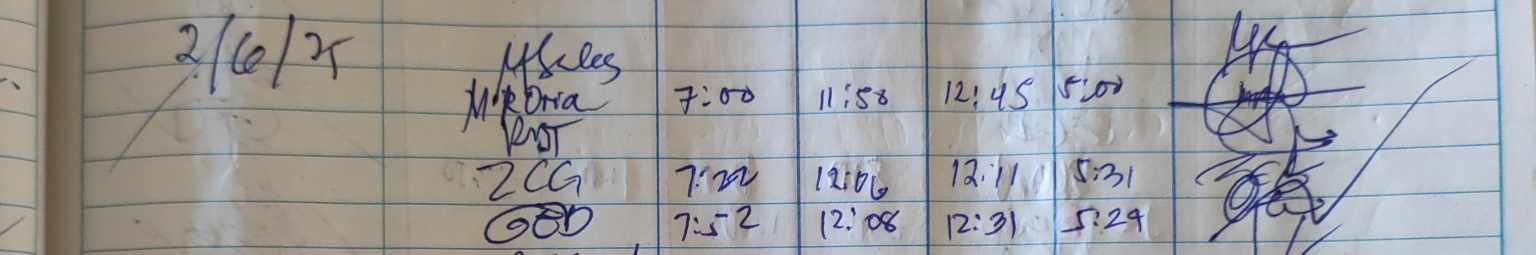 2/6/25
M R Oria 7:00 11:58 12:45 5:00
ZCG 7:22 12:06 12:11 5:31
GBD 7:52 12:08 12:31 5:29